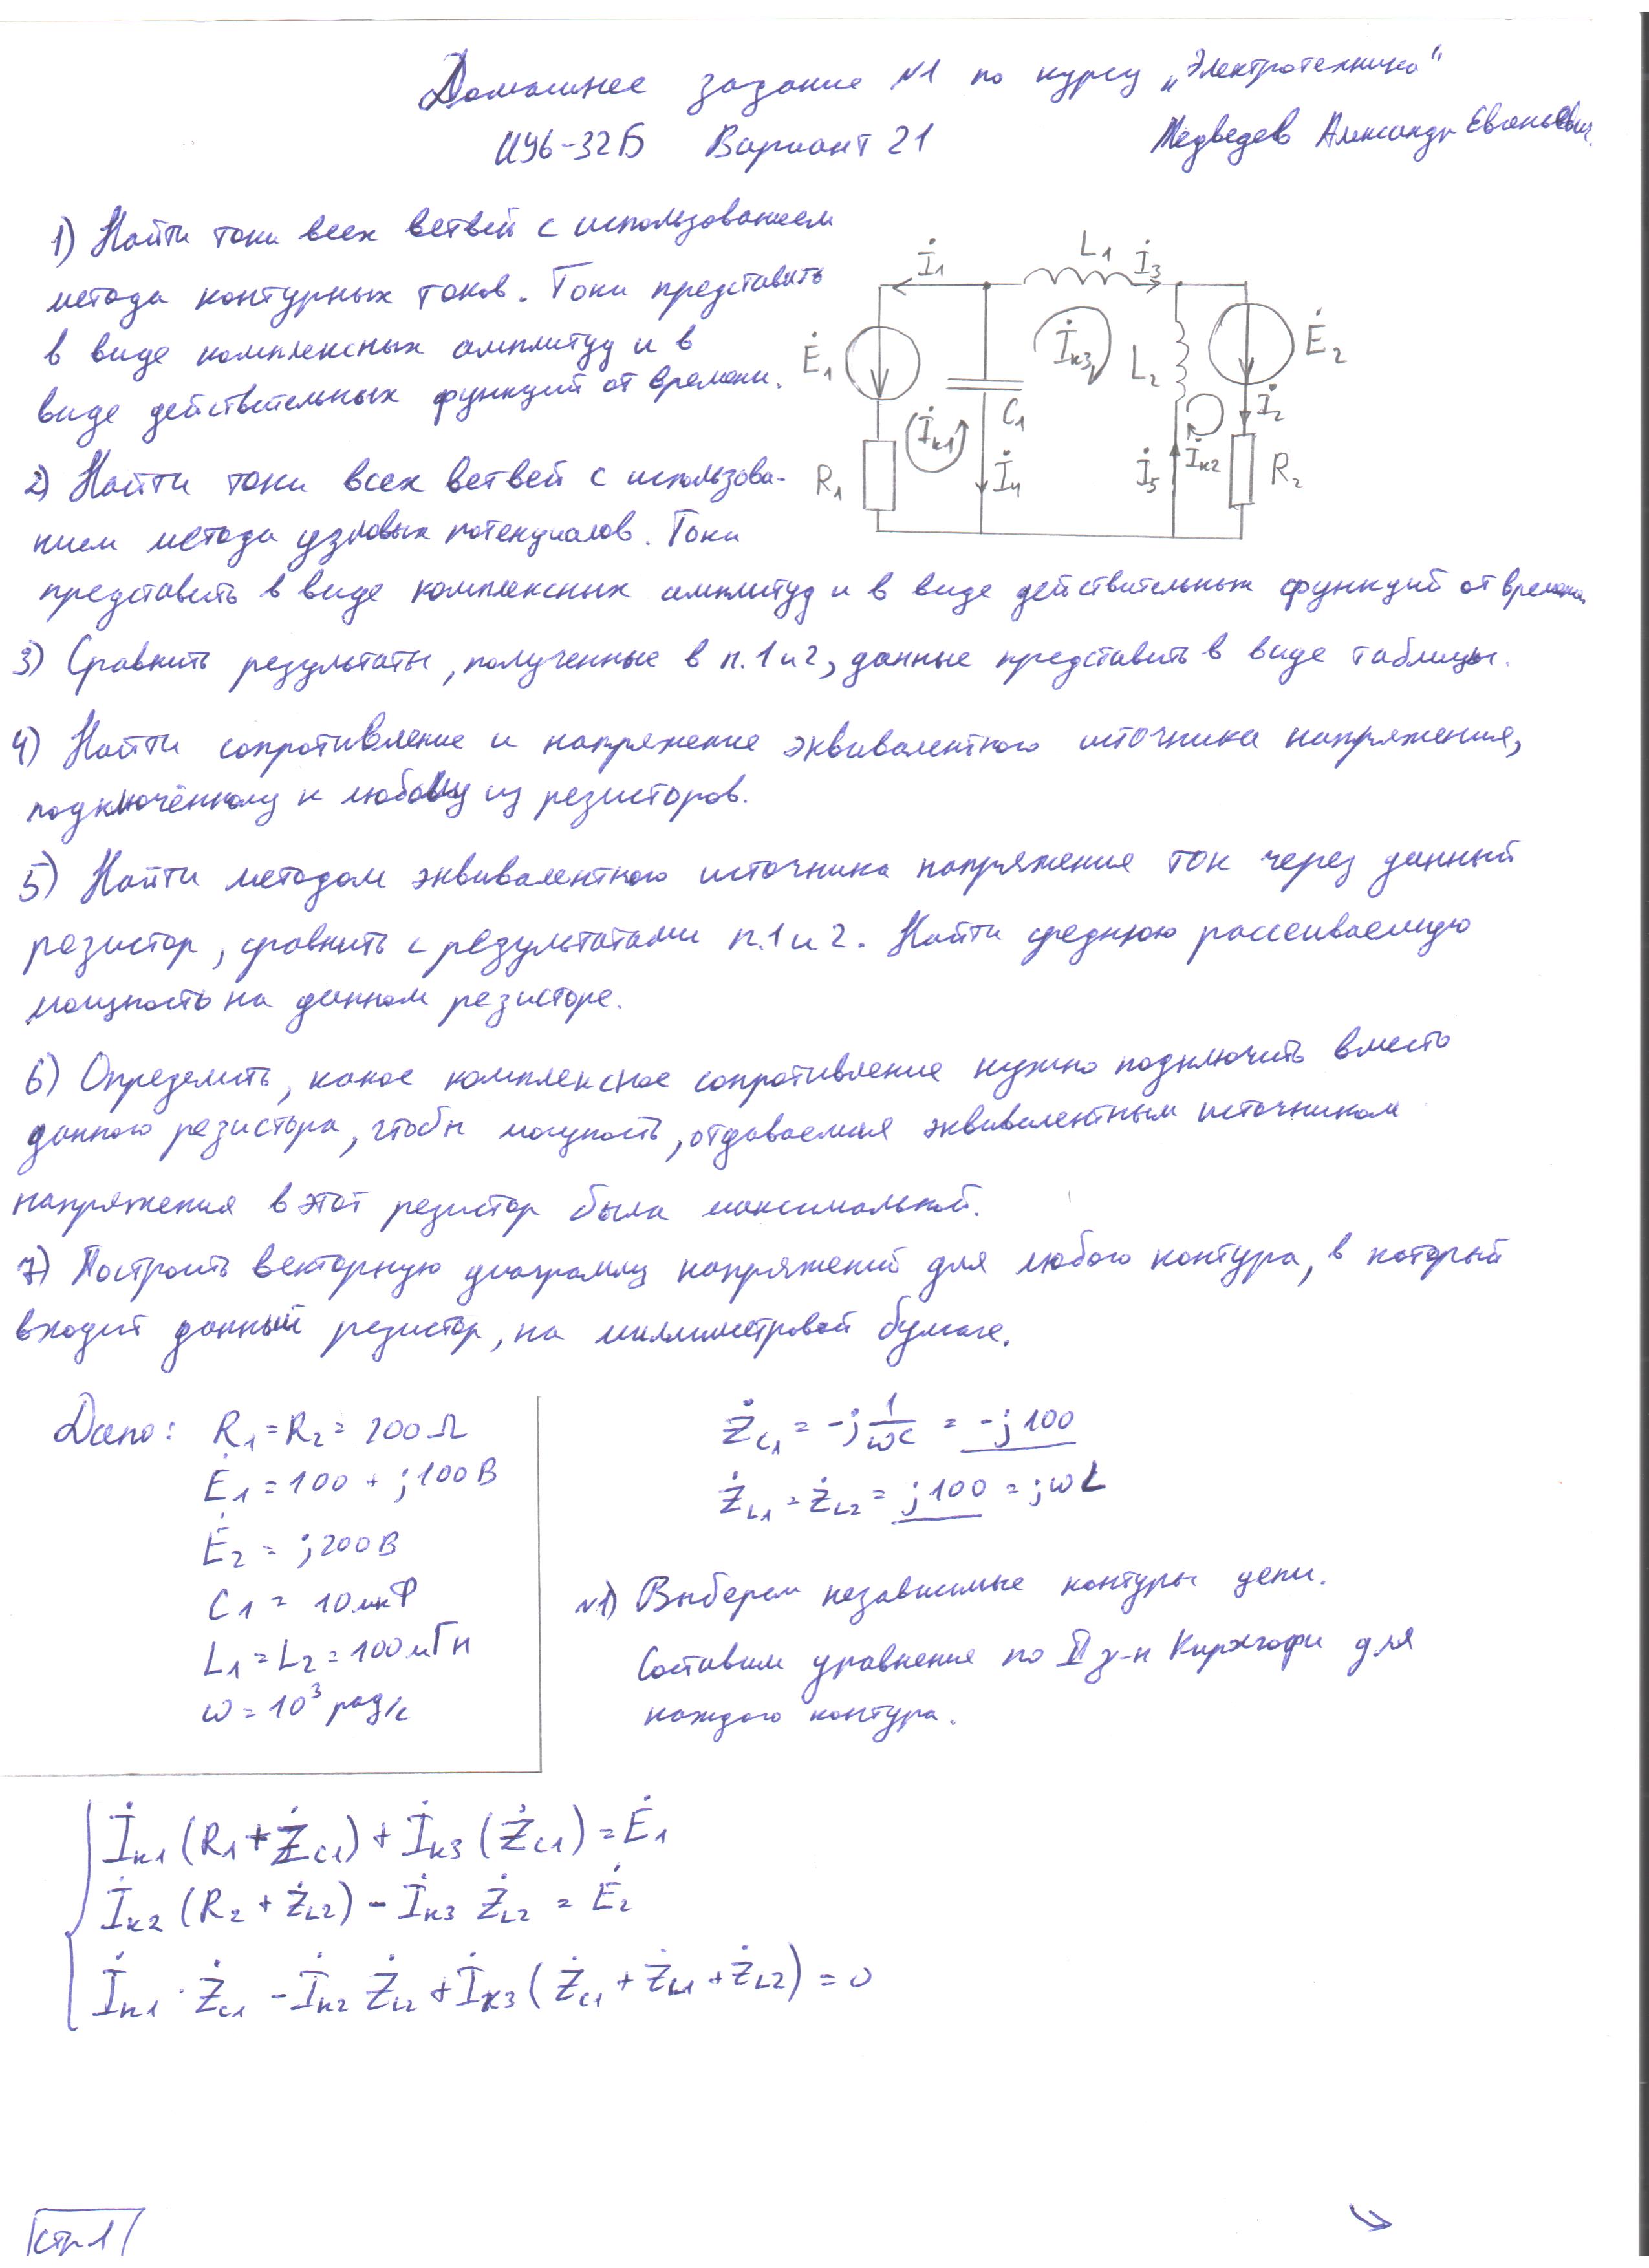 Домашнее задание №1 по курсу „Электротехника“
ИУ6-32Б Вариант 21
Медведев Александр
1) Найти токи всех ветвей с использованием
метода контурных токов. Токи представить
в виде комплексных амплитуд и в
виде действительных функций от времени.
2) Найти токи всех ветвей с использова-
нием метода узловых потенциалов. Токи
представить в виде комплексных амплитуд и в виде действительных функций от времени.
İ1
L1
İ3
Ė1
İк3
L2
Ė2
İк1
C1
İ2
R1
İ4
İ5
İк2
R2
3) Сравнить результаты, полученные в п.1 и 2, данные представить в виде таблицы.
4) Найти сопротивление и напряжение эквивалентного источника напряжения,
подключённому к любому из резисторов.
5) Найти методом эквивалентного источника напряжения ток через данный
резистор, сравнить с результатами п.1 и 2. Найти среднюю рассеиваемую
мощность на данном резисторе.
6) Определить, какое комплексное сопротивление нужно подключить вместо
данного резистора, чтобы мощность, отдаваемая эквивалентным источником
напряжения в этот резистор была максимальной.
7) Построить векторную диаграмму напряжений для любого контура, в который
входит данный резистор, на миллиметровой бумаге.
Дано: R1 = R2 = 200 Ω
Ė1 = 100 + j100 В
Ė2 = j200 В
C1 = 10 мкФ
L1 = L2 = 100 мГн
ω = 10³ рад/с
Ż_C1 = -j 1/ωC = -j100
Ż_L1 = Ż_L2 = j100 = jωL
№1) Выберем независимые контуры цепи.
Составим уравнение по II з-н Кирхгофа для
каждого контура.
İк1 (R1 + Ż_C1) + İк3 (Ż_C1) = Ė1
İк2 (R2 + Ż_L2) - İк3 Ż_L2 = Ė2
İк1 · Ż_C1 - İк2 Ż_L2 + İк3 (Ż_C1 + Ż_L1 + Ż_L2) = 0
стр 1